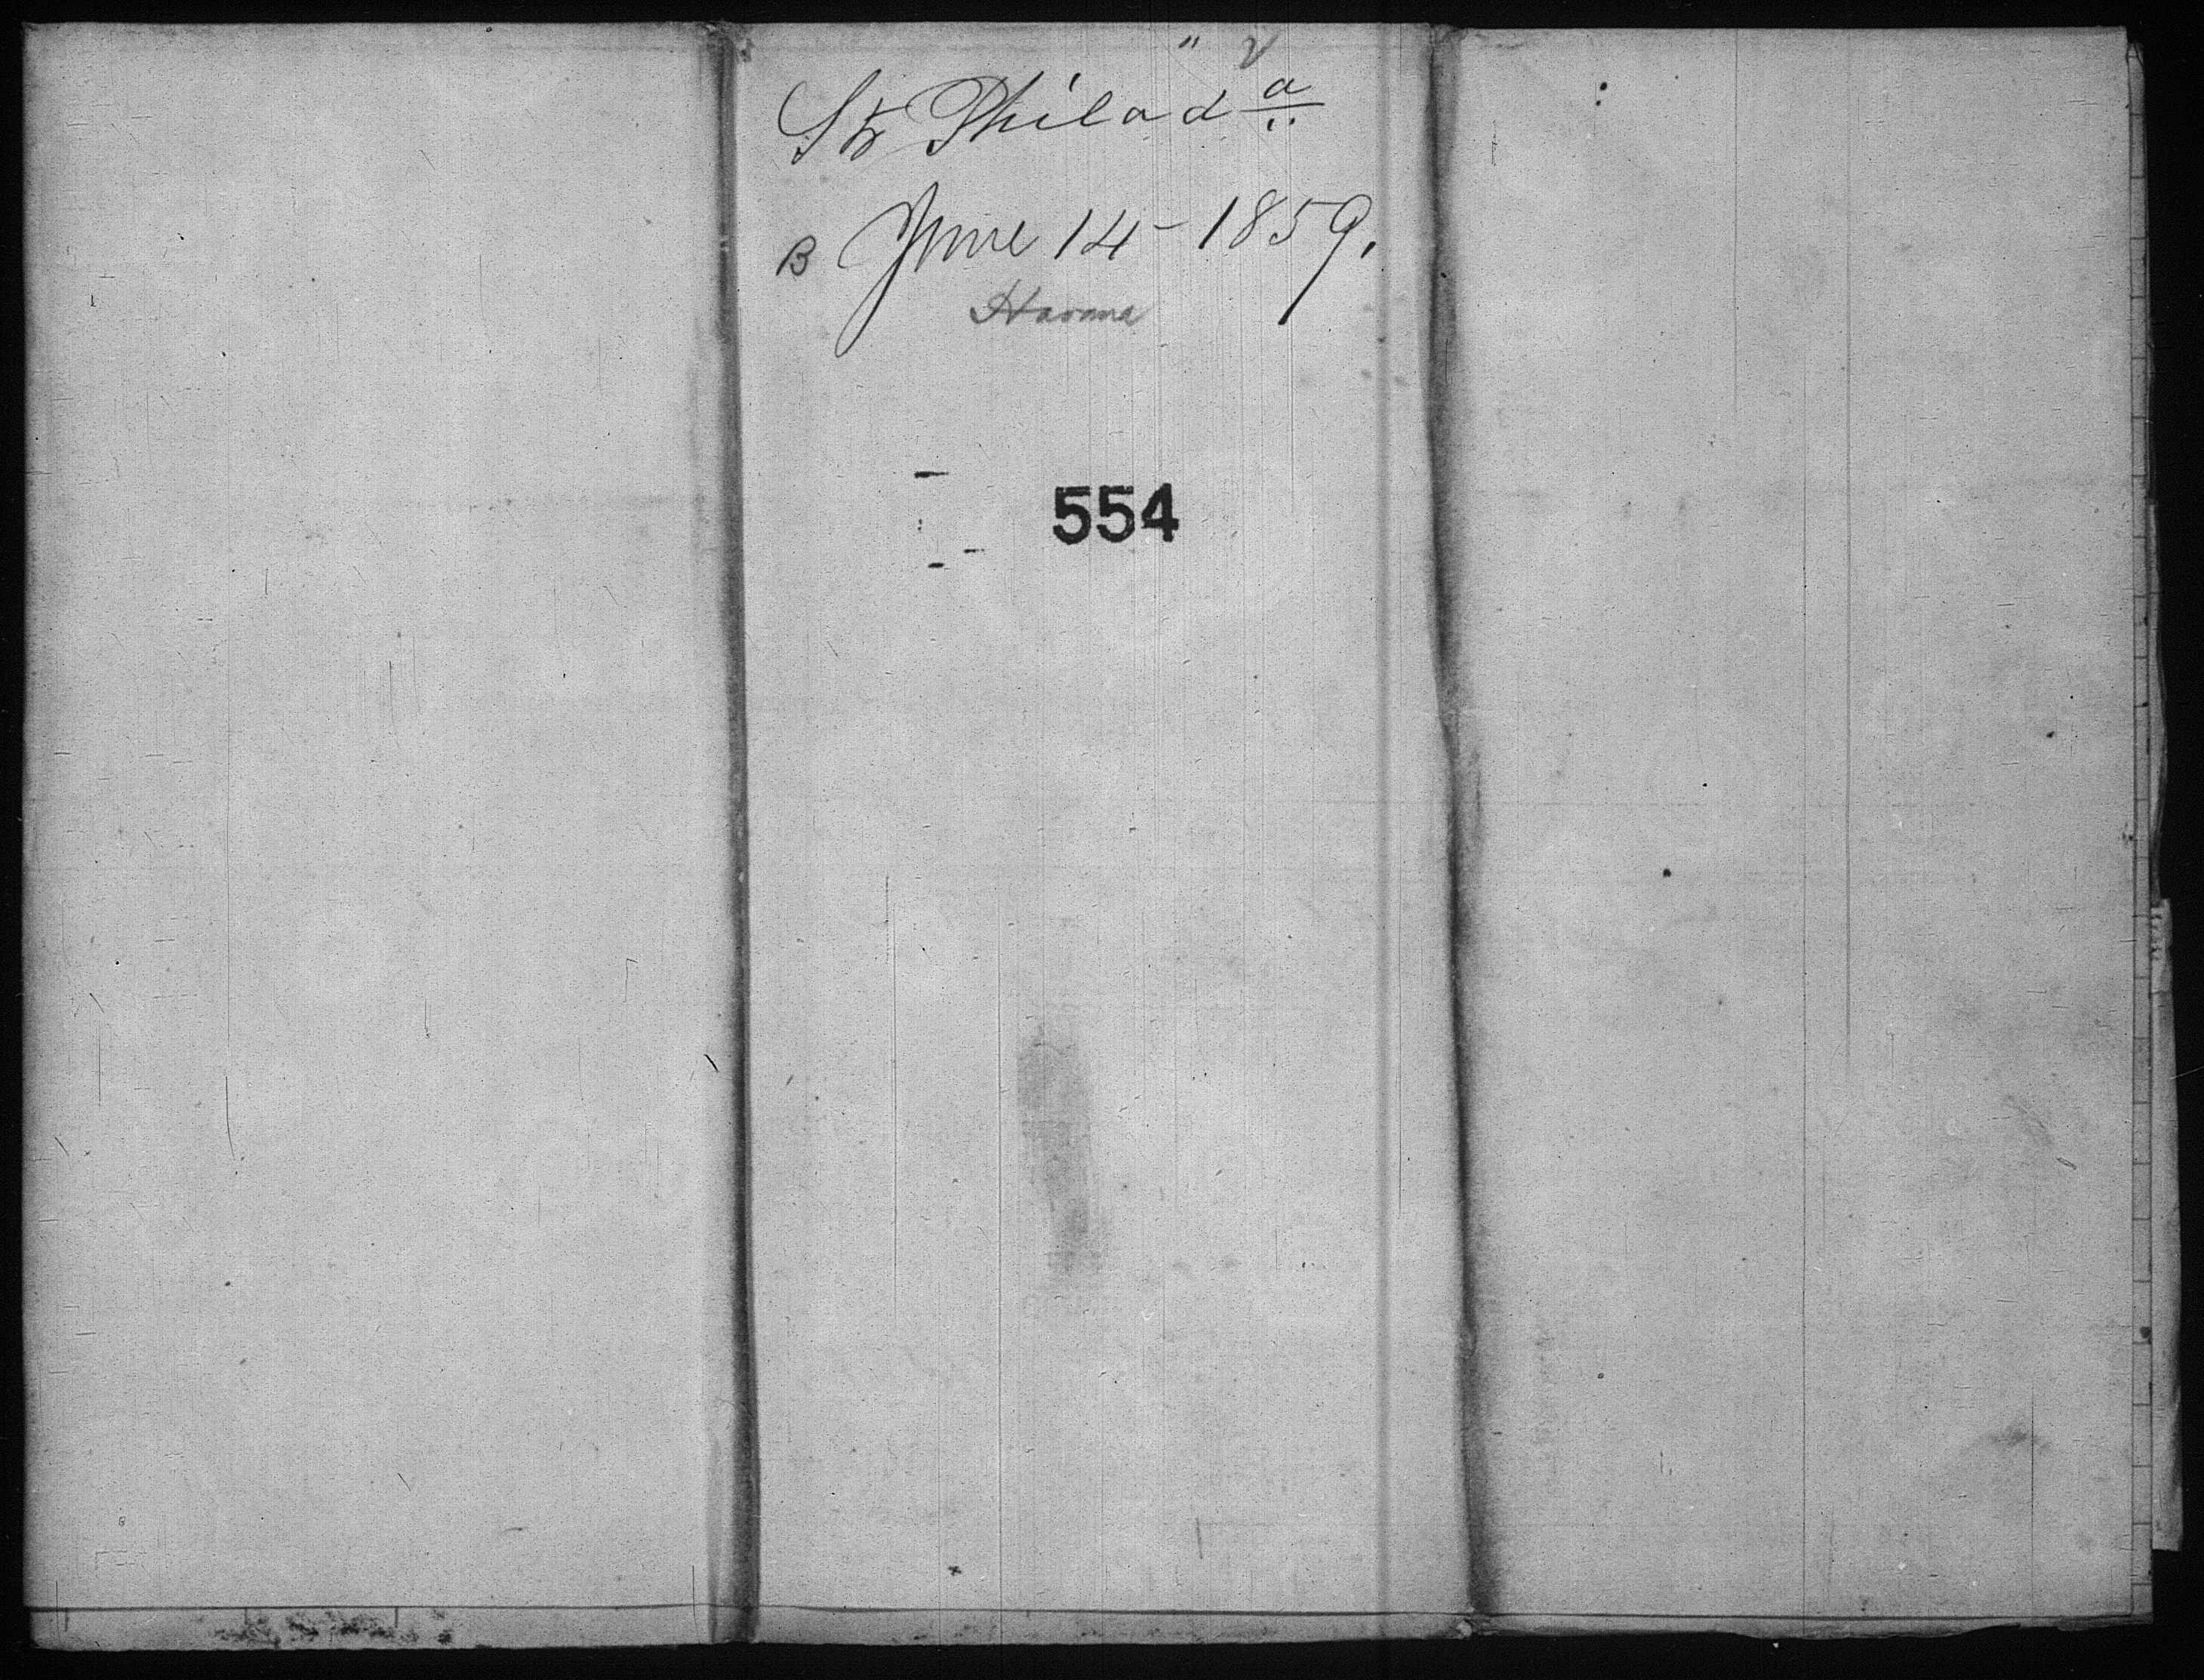 Str Philada
B June 14 - 1859.
Havana
554